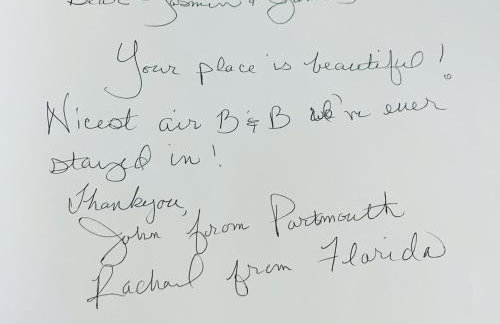 Dear Jasmin &
Your place is beautiful!
Nicest air B & B we've ever
stayed in!
Thankyou,
John from Partmouth
Rachael from Florida